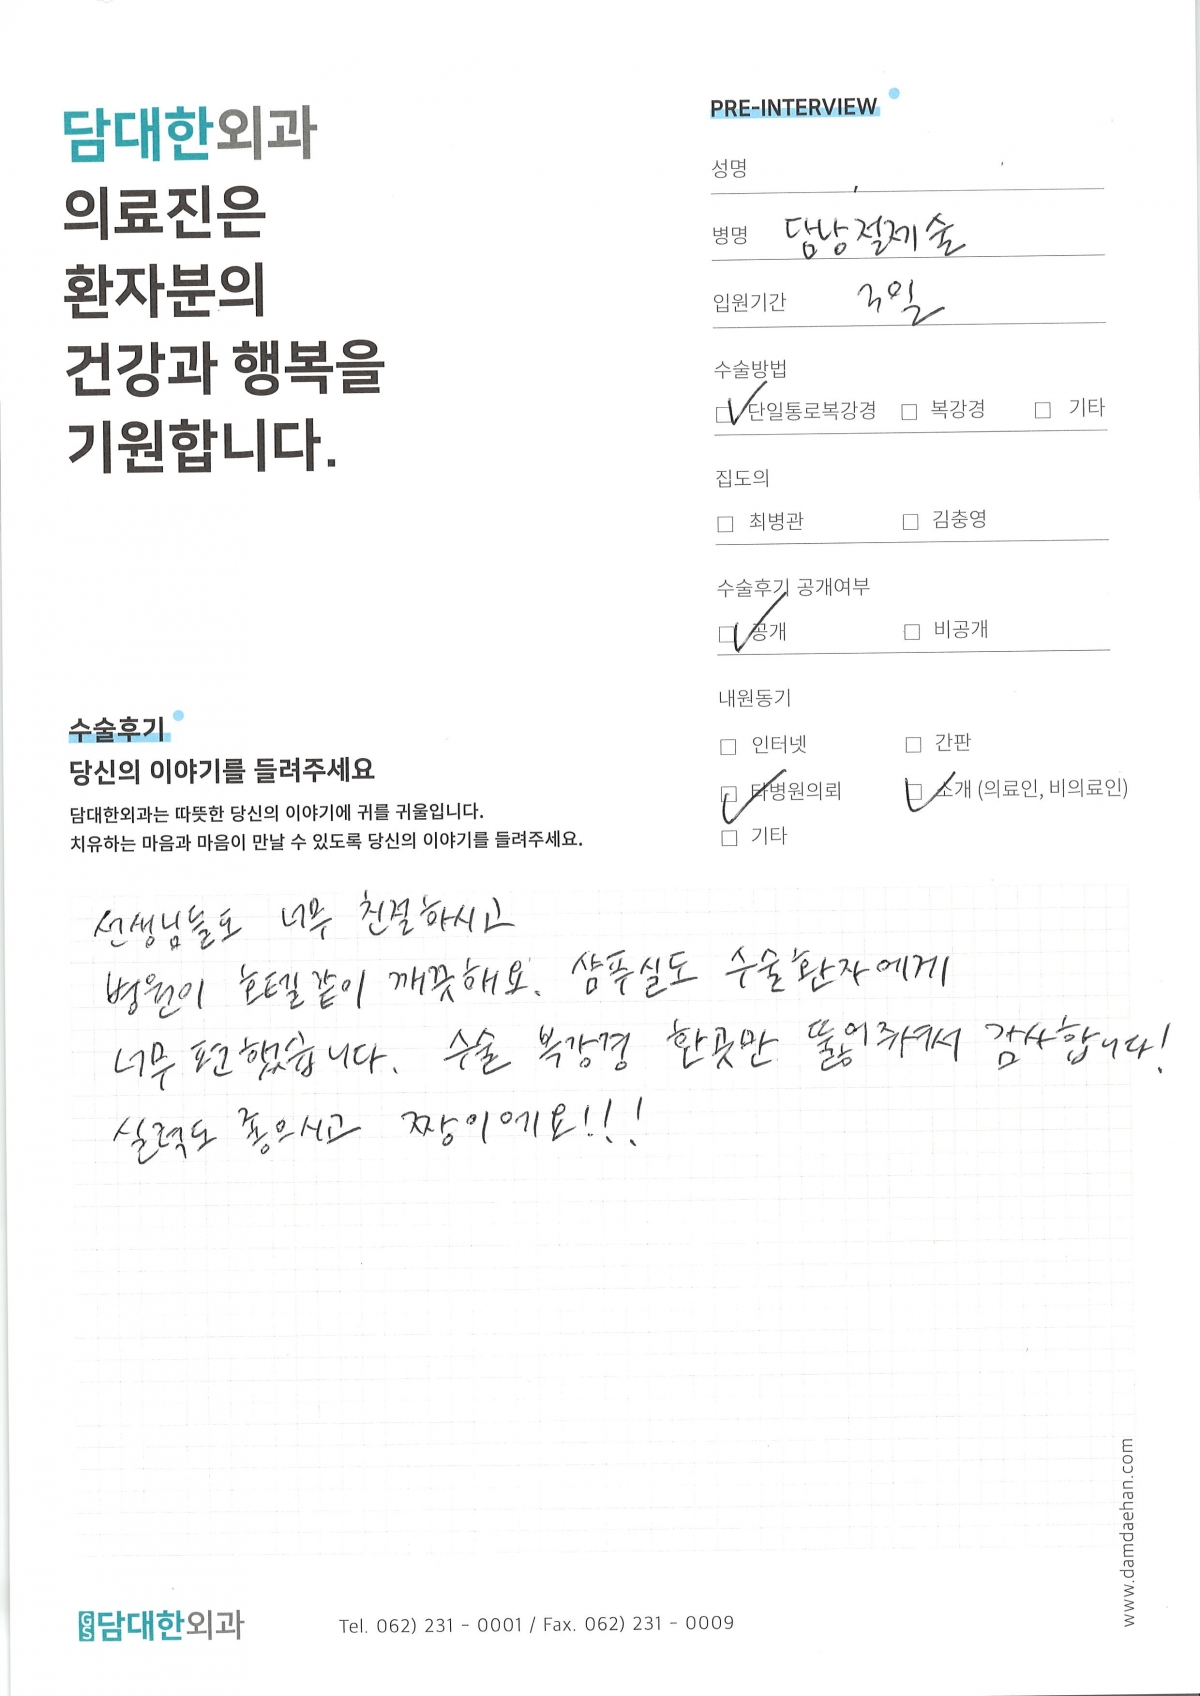 담대한외과
의료진은
환자분의
건강과 행복을
기원합니다.
PRE-INTERVIEW
성명
병명 담낭절제술
입원기간 3일
수술방법
단일통로복강경 복강경 기타
집도의
최병관 김충영
수술후기 공개여부
공개 비공개
내원동기
인터넷 간판
타병원의뢰 소개 (의료인, 비의료인)
기타
수술후기
당신의 이야기를 들려주세요
담대한외과는 따뜻한 당신의 이야기에 귀를 귀울입니다.
치유하는 마음과 마음이 만날 수 있도록 당신의 이야기를 들려주세요.
선생님들도 너무 친절하시고
병원이 호텔같이 깨끗해요. 샴푸실도 수술환자에게
너무 편했습니다. 수술 복강경 한곳만 뚫어주셔서 감사합니다!
실력도 좋으시고 짱이에요!!!
www.damdaehan.com
GS담대한외과
Tel. 062) 231 - 0001 / Fax. 062) 231 - 0009